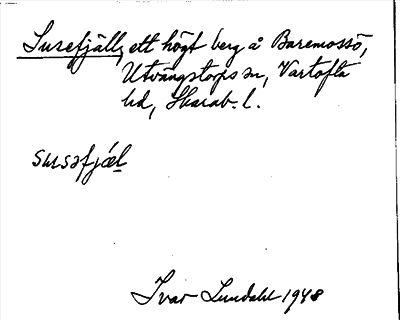 Susefjäll, ett högt berg å Baremossö,
Utvängstorps sn, Vartofta
hd, Skarab. l.
susəfjæl
Ivar Lundahl 1948